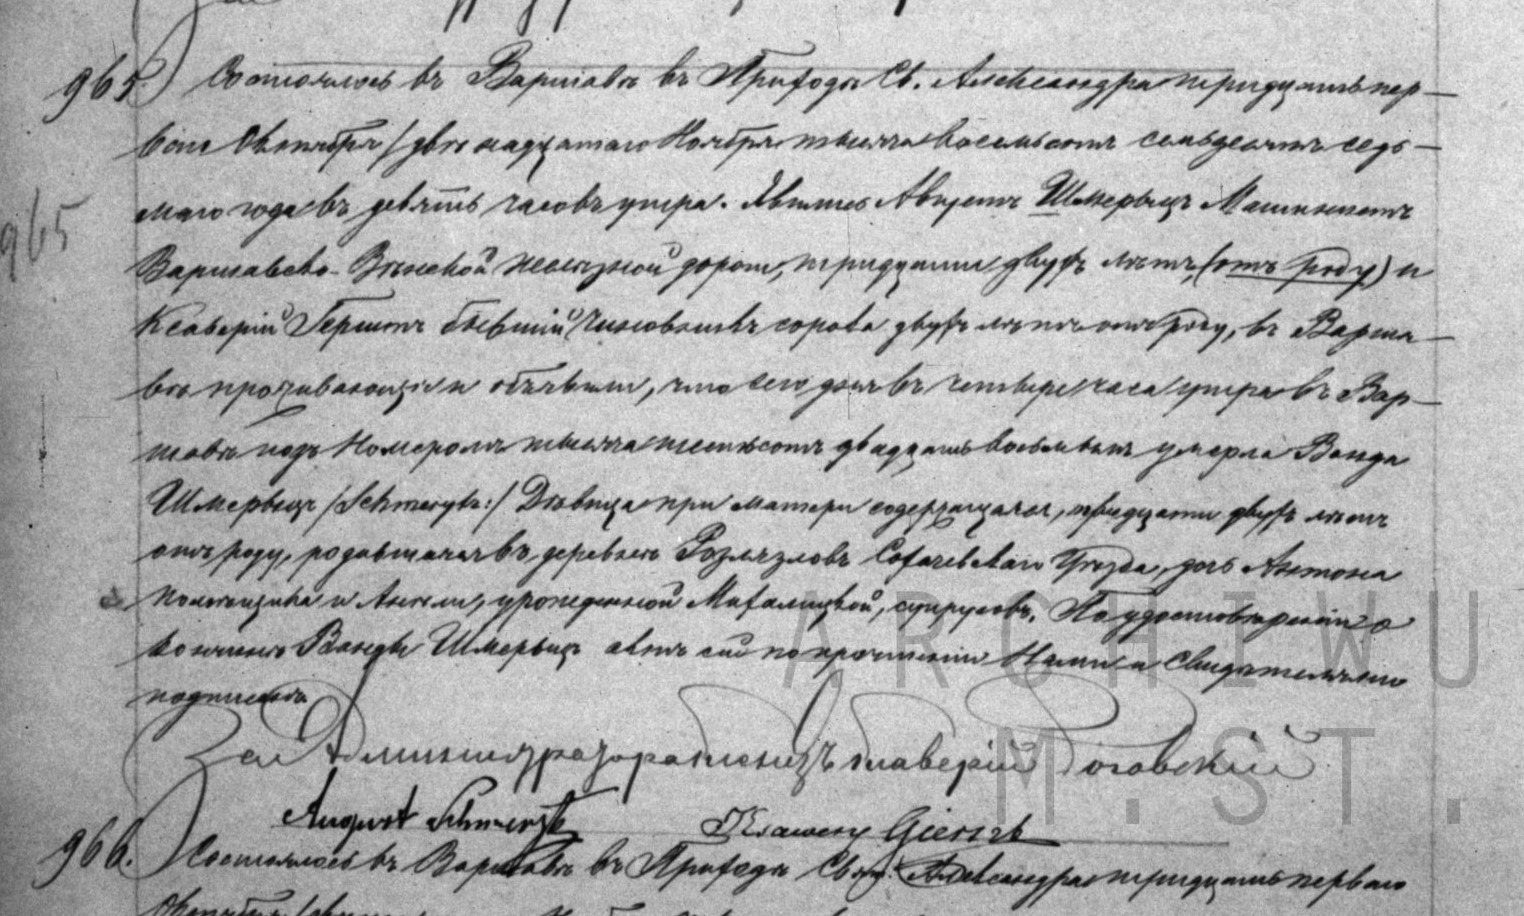 965. Состоялось въ Варшавѣ въ Приходѣ Св. Александра тридцать пер-
ваго Октября /двѣнадцатаго Ноября тысяча восемьсотъ семьдесятъ седь-
маго года въ девять часовъ утра. Явились Августъ Шмерыцъ Машинистъ
965
Варшавско-Вѣнской желѣзной дороги, тридцати двухъ лѣтъ, (отъ роду) и
Ксаверій бывшій Чиновникъ сорока двухъ лѣтъ отъ роду, въ Варша-
вѣ проживающіе и объявили, что сего дня въ четыре часа утра въ Вар-
шавѣ подъ Номеромъ тысяча шестьсотъ двадцать восьмымъ умерла Ванда
Шмерыцъ /Schmeryts:/ Дѣвица при матери содержащаяся, тридцати двухъ лѣтъ
отъ роду, родившаяся въ деревнѣ Сохачевскаго Уѣзда, дочь Антона
и Анели, урожденной Михалицкой, супруговъ. По удостовѣреніи о
кончинѣ Ванды Шмерыцъ актъ сей по прочтеніи Нами и Свидѣтелями
подписанъ
За Администратора Ксаверій Роговскій
August Ksawery
966. Состоялось въ Варшавѣ въ Приходѣ Св. Александра тридцать перваго
Октября
ARCHIWU
M.ST.